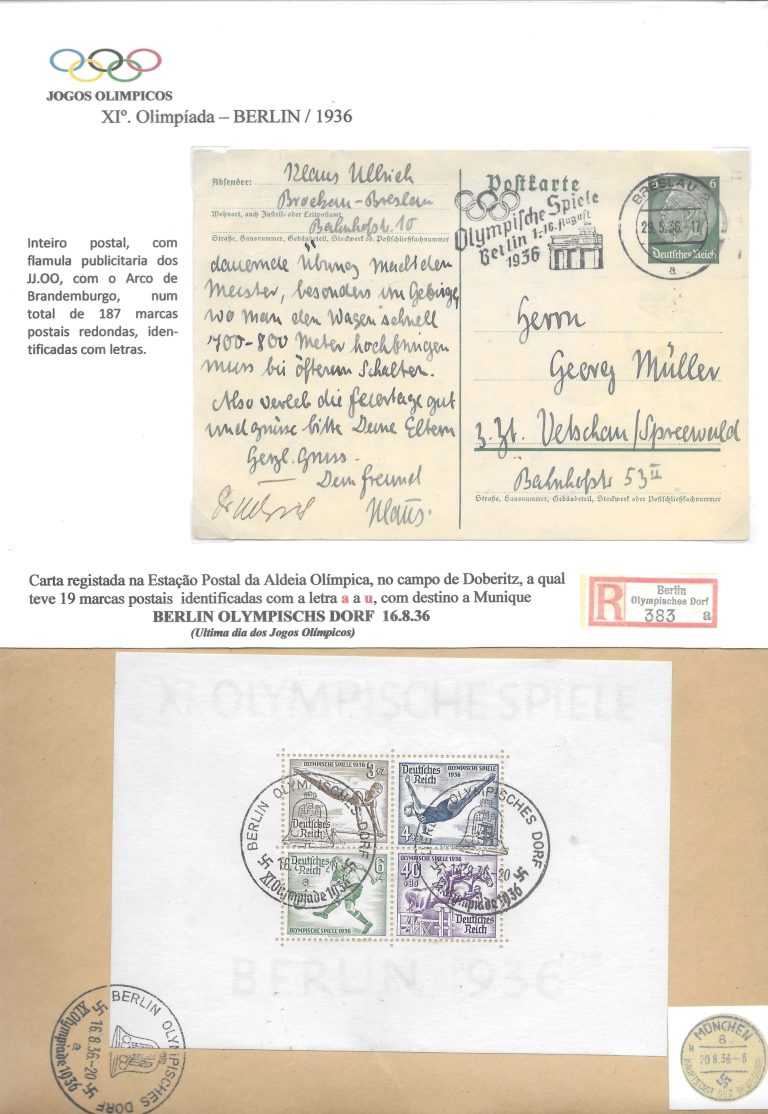 JOGOS OLIMPICOS
XIº. Olimpíada – BERLIN / 1936
Inteiro postal, com
flamula publicitaria dos
JJ.OO, com o Arco de
Brandemburgo, num
total de 187 marcas
postais redondas, iden-
tificadas com letras.
Absender: Klaus Ullrich
Brockau-Breslau
Wohnort, auch Zustell- oder Leitpostamt
Bahnhofstr. 10
Straße, Hausnummer, Gebäudeteil, Stockwerk od. Postschließfachnummer
dauernde Übung macht den
Meister, besonders im Gebirge,
wo man den Wagen schnell
700-800 Meter hochbringen
muss bei öfterem Schalten.
Also verleb die Feiertage gut
und grüsse bitte Deine Eltern
Herzl. Gruss.
Dein Freund
Klaus.
Postkarte
Olympische Spiele
Berlin 1.-16. August
1936
BRESLAU 2
29.5.36.-17
a
6
Deutsches Reich
Herrn
Georg Müller
z. Zt. Vetschau/Spreewald
Bahnhofstr. 53 II
Straße, Hausnummer, Gebäudeteil, Stockwerk oder Postschließfachnummer
Carta registada na Estação Postal da Aldeia Olímpica, no campo de Doberitz, a qual
teve 19 marcas postais identificadas com a letra a a u, com destino a Munique
BERLIN OLYMPISCHS DORF 16.8.36
(Ultima dia dos Jogos Olímpicos)
R
Berlin
Olympisches Dorf
383 a
XI OLYMPISCHE SPIELE
OLYMPISCHE SPIELE 1936
3
Deutsches Reich
Deutsches Reich
1936
4
Deutsches Reich
6
OLYMPISCHE SPIELE 1936
OLYMPISCHE SPIELE 1936
40
Deutsches Reich
BERLIN OLYMPISCHES DORF
16.8.36-20
a
XI.Olympiade 1936
OLYMPISCHES DORF
16.8.36-20
a
XI.Olympiade 1936
BERLIN 1936
BERLIN OLYMPISCHES DORF
16.8.36-20
a
XI.Olympiade 1936
MÜNCHEN
8
20.8.36-8
HAUPTSTADT DER BEWEGUNG